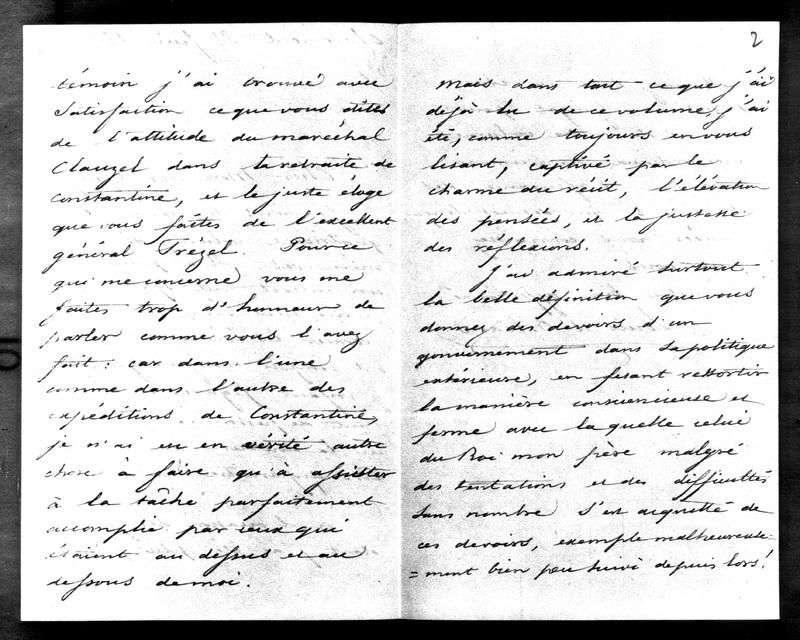 témoin j'ai trouvé avec
satisfaction ce que vous dites
de l'attitude du maréchal
Clauzel dans la retraite de
Constantine, et le juste éloge
que vous faites de l'excellent
général Trézel. Pour ce
qui me concerne vous me
faites trop d'honneur de
parler comme vous l'avez
fait : car dans l'une
comme dans l'autre des
expéditions de Constantine,
je n'ai eu en vérité autre
chose à faire qu'à assister
à la tâche parfaitement
accomplie par ceux qui
étaient au dessus et au
dessous de moi.
2
Mais dans tout ce que j'ai
déjà lu de ce volume, j'ai
été, comme toujours en vous
lisant, captivé par le
charme du récit, l'élévation
des pensées, et la justesse
des réflexions.
J'ai admiré surtout
la belle définition que vous
donnez des devoirs d'un
gouvernement dans sa politique
extérieure, en fesant ressortir
la manière consciencieuse et
ferme avec laquelle celui
du Roi mon père malgré
des tentations et des difficultés
sans nombre s'est acquitté de
ces devoirs, exemple malheureuse-
=ment bien peu suivi depuis lors!